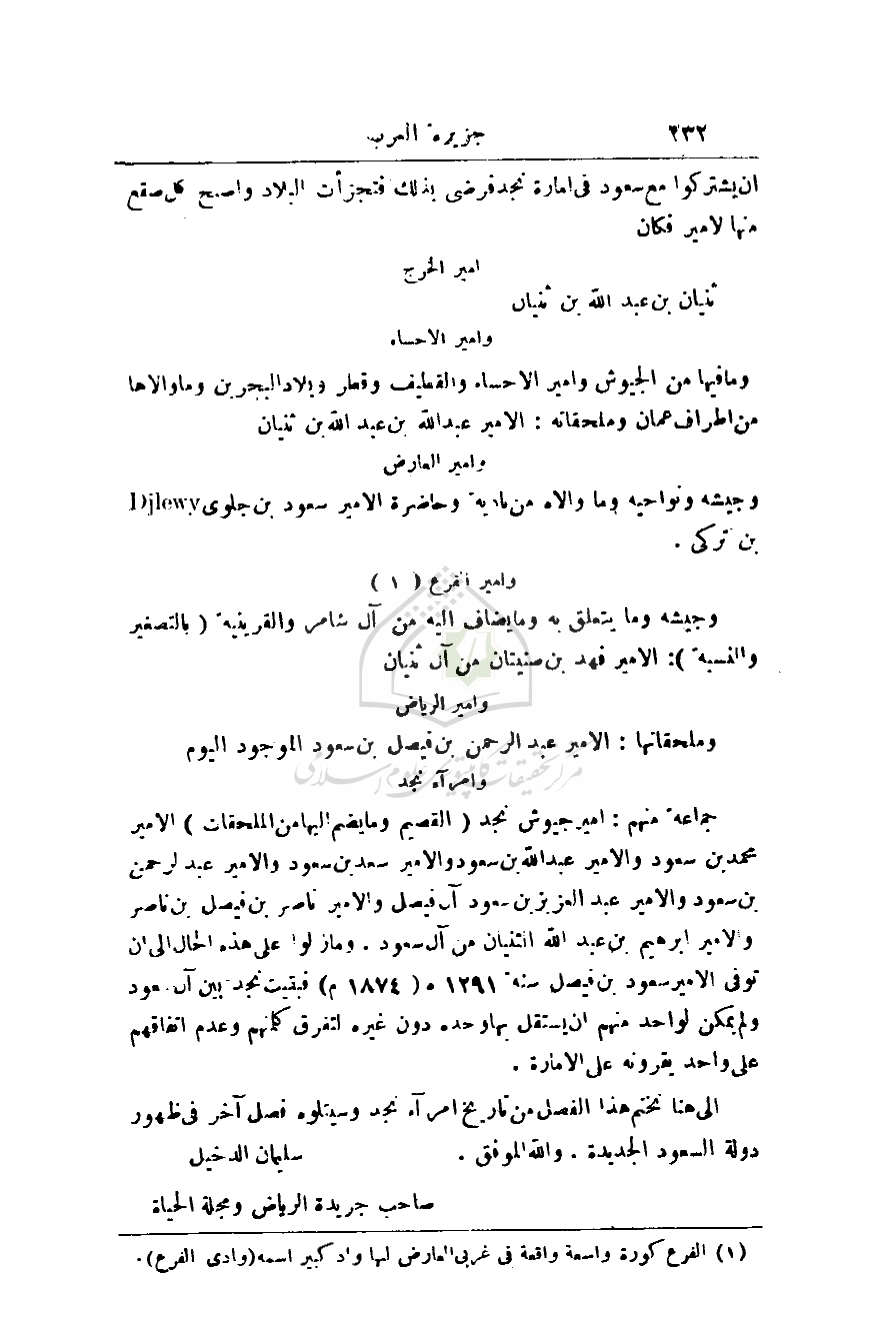 ٢٣٢ جزيرة العرب
ان يشتركوا مع سعود في امارة نجد فرضي بذلك فتجزأت البلاد واصبح كل صقع
منها لامير فكان
امير الخرج
ثنيان بن عبد الله بن ثنيان
وامير الاحساء
ومافيها من الجيوش وامير الاحساء والقطيف وقطر وبلاد البحرين وماوالاها
من اطراف عمان وملحقاته : الامير عبدالله بن عبد الله بن ثنيان
وامير العارض
وجيشه ونواحيه وما والاه من بادية وحاضرة الامير سعود بن جلوي Djlewy
بن تركي .
وامير الفرع ( ١ )
وجيشه وما يتعلق به ومايضاف اليه من آل شامر والقرينية ( بالتصغير
والنسبة ): الامير فهد بن صنيتان من آل ثنيان
وامير الرياض
وملحقاتها : الامير عبد الرحمن بن فيصل بن سعود الموجود اليوم
مركز تحقيقات كامپيوترى علوم اسلامى
وامرآء نجد
جماعة منهم : امير جيوش نجد ( القصيم ومايضم اليها من الملحقات ) الامير
محمد بن سعود والامير عبدالله بن سعود والامير سعد بن سعود والامير عبد لرحمن
بن سعود والامير عبد العزيز بن سعود آل فيصل والامير ناصر بن فيصل بن ناصر
والامير ابرهيم بن عبد الله الثنيان من آل سعود . ومازلوا على هذه الحال الى ان
توفى الامير سعود بن فيصل سنة ١٢٩١ ه ( ١٨٧٤ م ) فبقيت نجد بين آل سعود
ولم يمكن لواحد منهم ان يستقل بها وحده دون غيره لتفرق كلمتهم وعدم اتفاقهم
على واحد يقرونه على الامارة .
الى هنا نختم هذا الفصل من تاريخ امرآء نجد وسيتلوه فصل آخر في ظهور
دولة السعود الجديدة . والله الموفق . سليمان الدخيل
صاحب جريدة الرياض ومجلة الحياة
(١) الفرع كورة واسعة واقعة في غربي العارض لها واد كبير اسمه (وادي الفرع) .